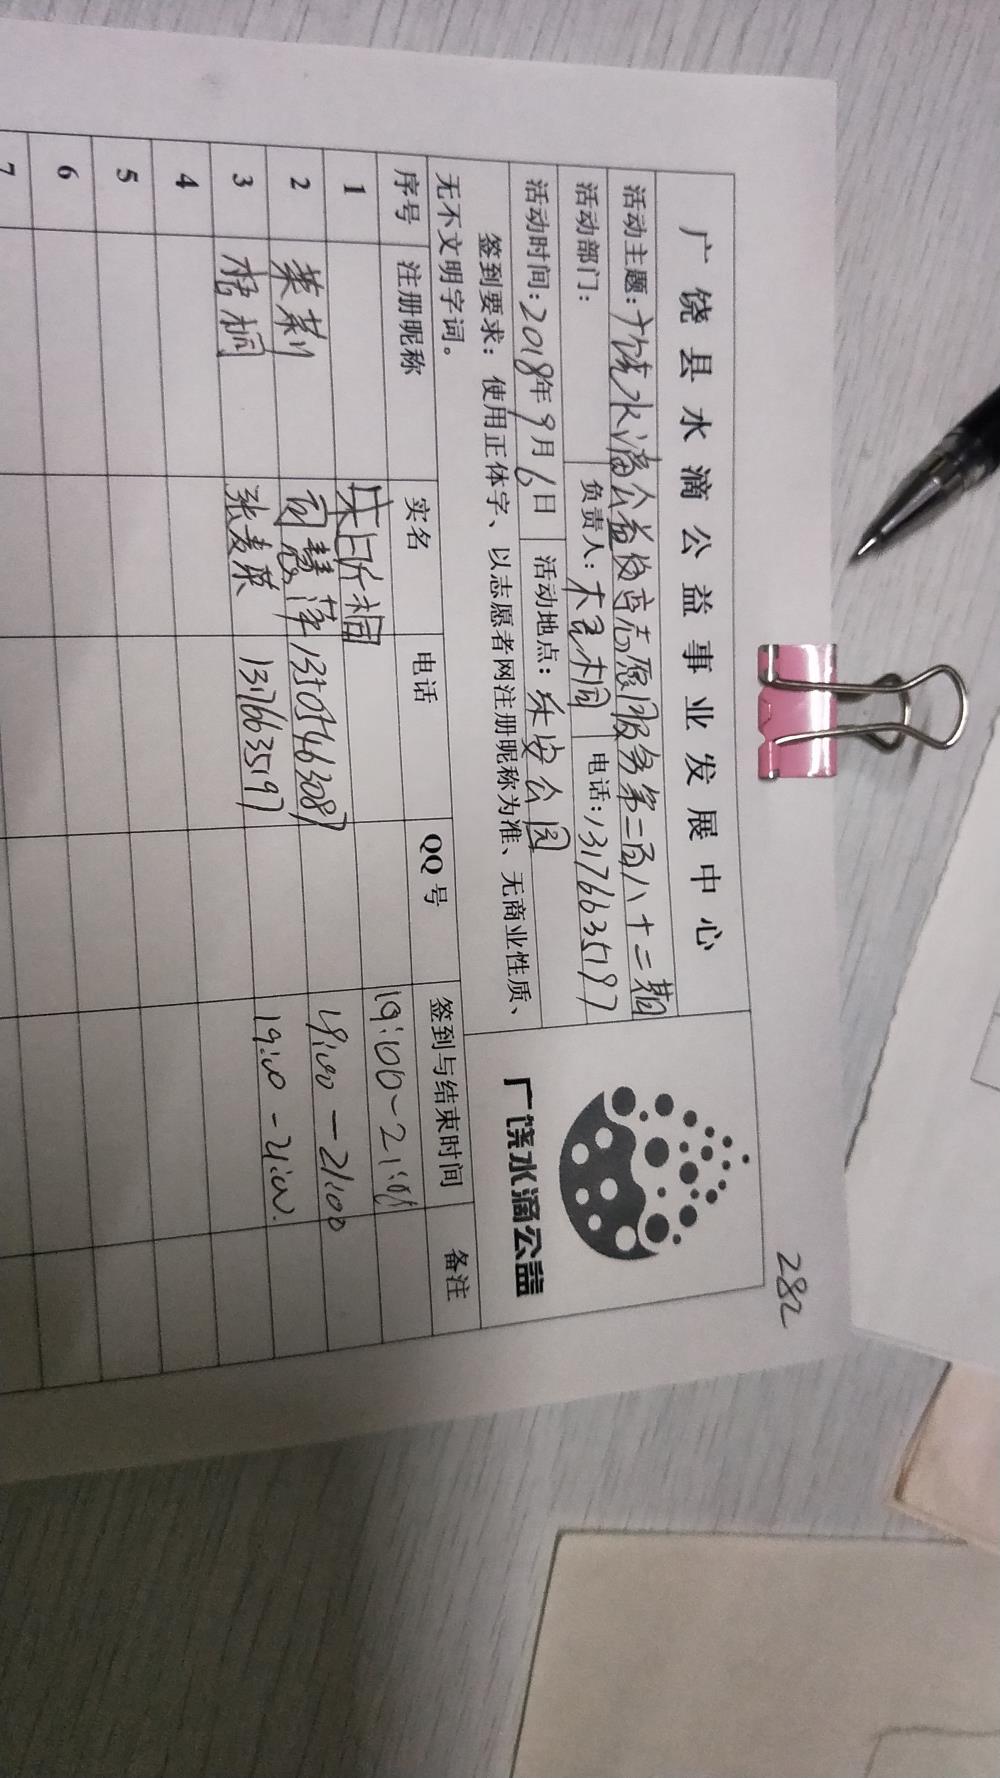 282
广饶县水滴公益事业发展中心
活动主题：广饶水滴公益教育志愿服务第二百八十二期
活动部门： 负责人： 电话：13176635197
活动时间：2018年9月6日 活动地点：乐安公园
签到要求：使用正体字、以志愿者网注册昵称为准、无商业性质、
无不文明字词。
广饶水滴公益
序号 注册昵称 实名 电话 QQ号 签到与结束时间 备注
1 19:00-21:00
2 茉莉 司慧萍 13505463087 19:00-21:00
3 梧桐 张春英 13176635197 19:00-21:00.
4
5
6
7